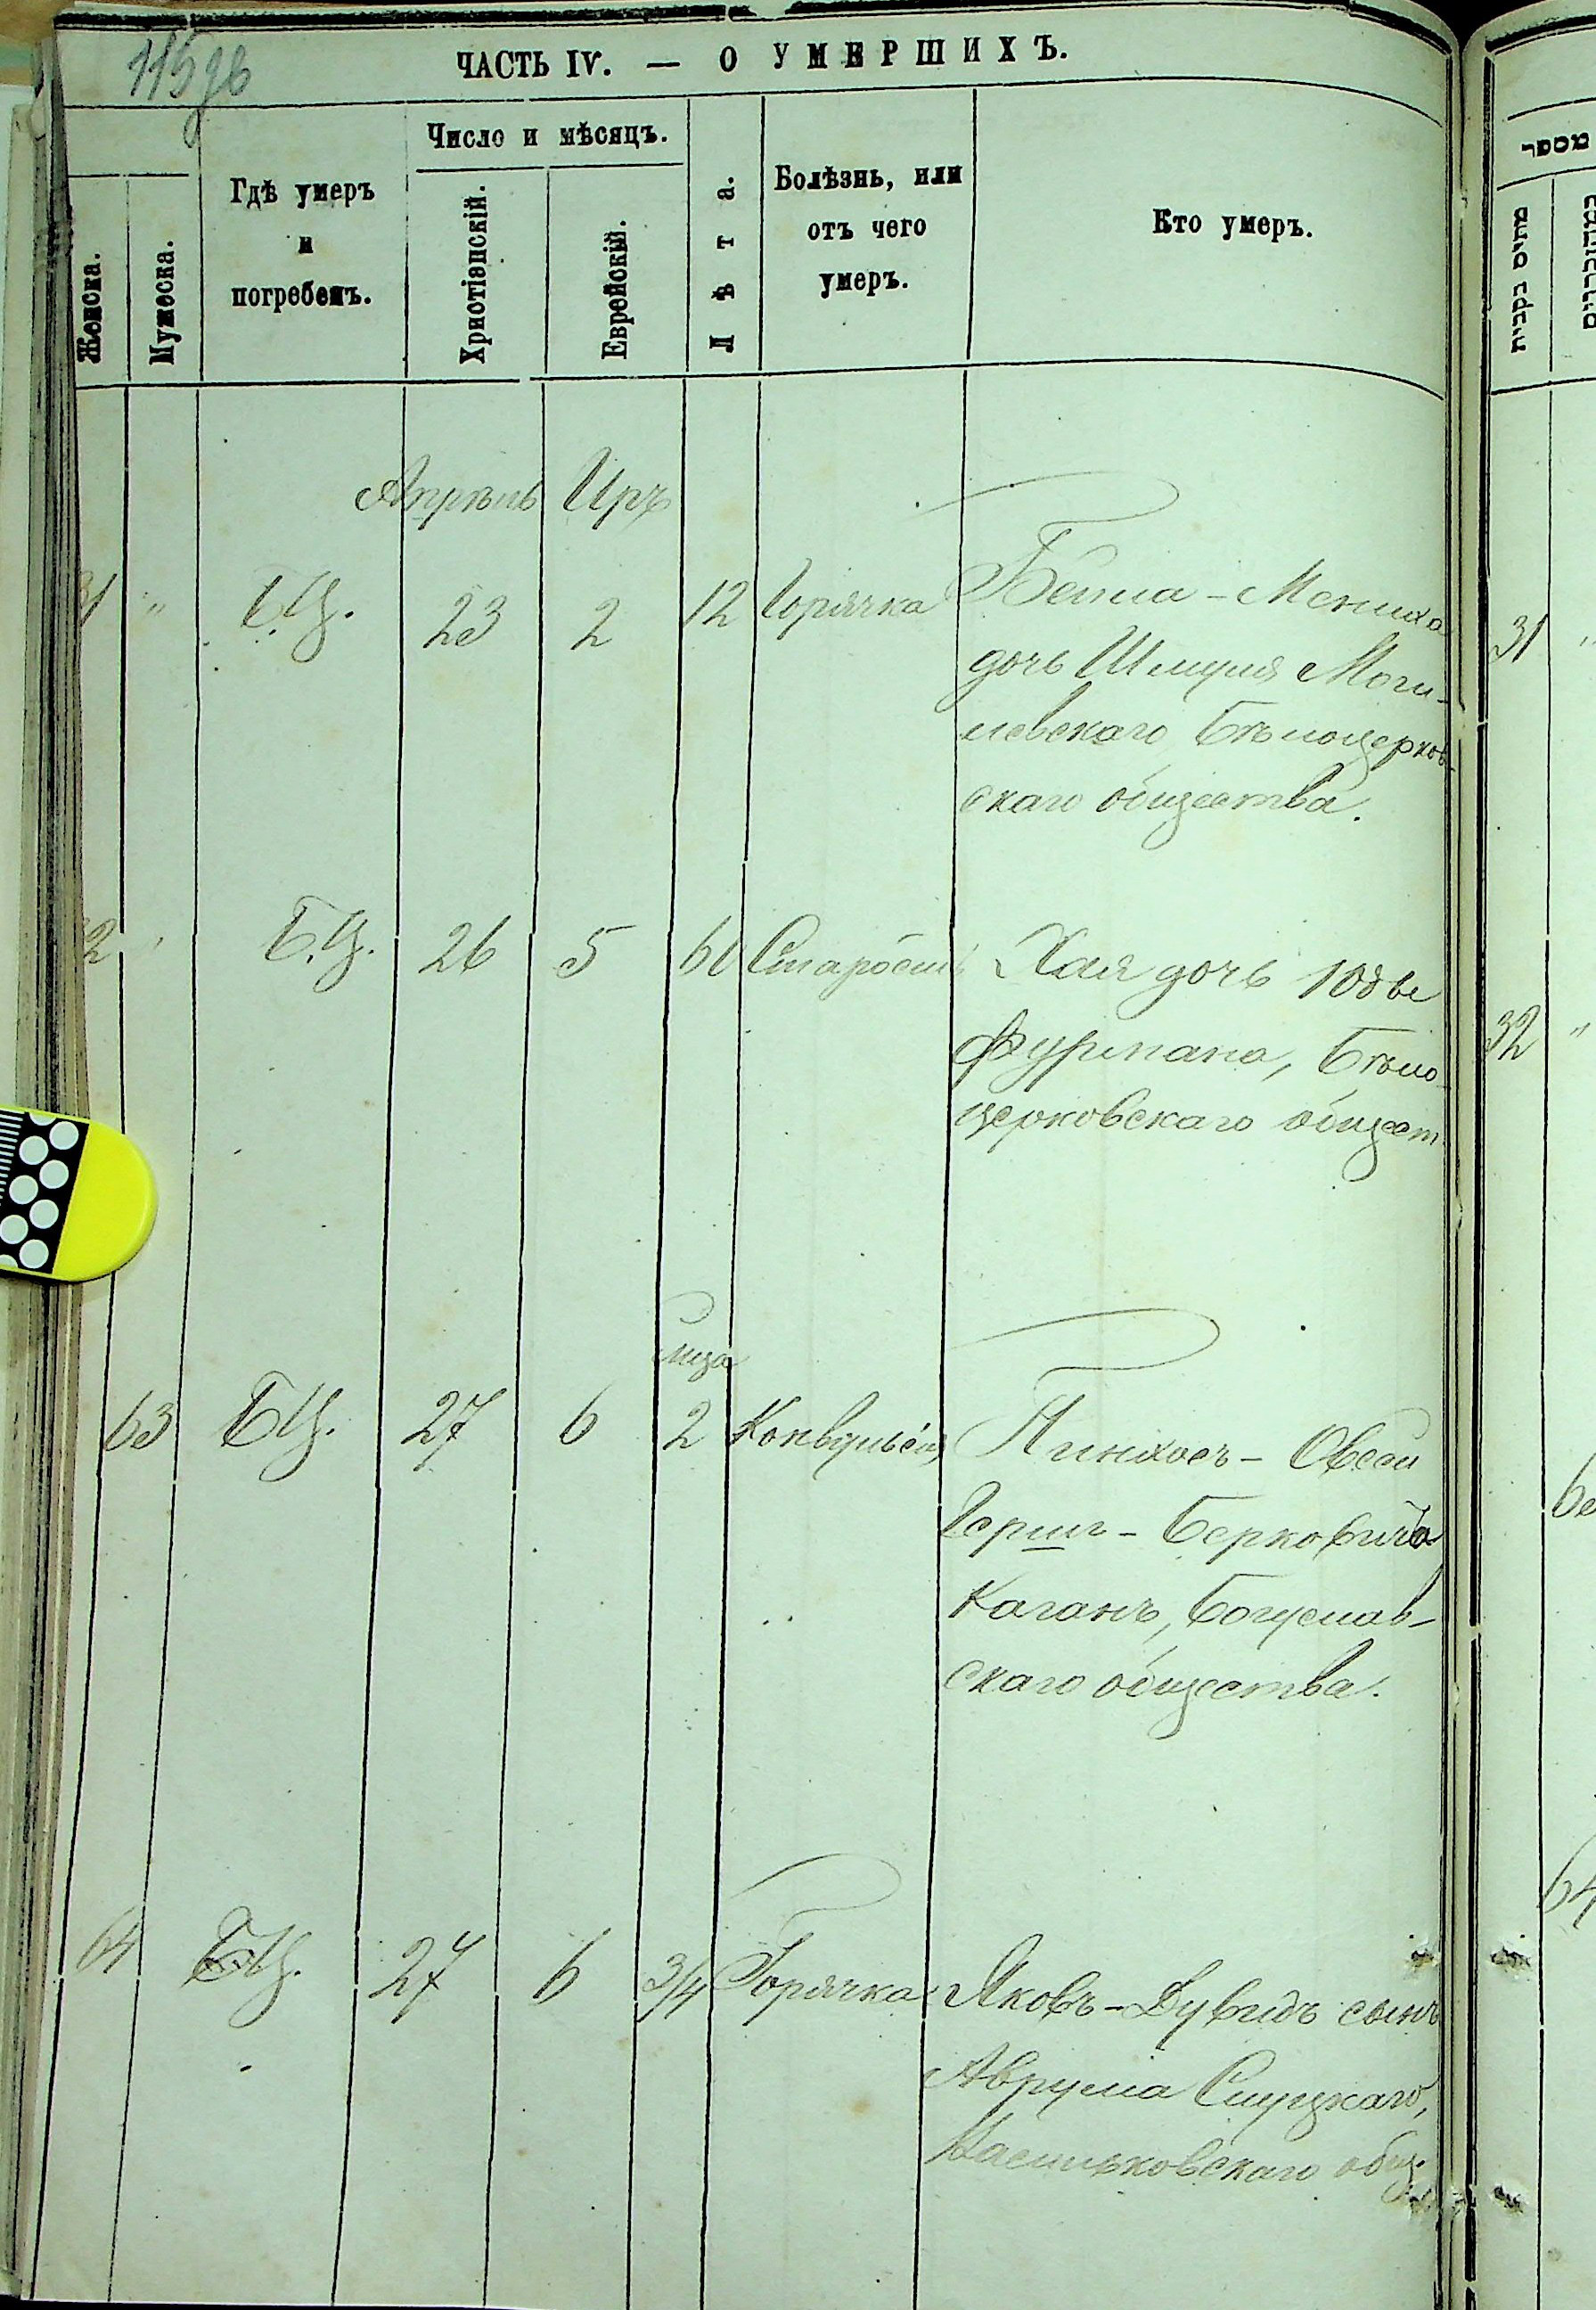 115зв
ЧАСТЬ IV. — О УМЕРШИХЪ.
Женска.
Мужеска.
Гдѣ умеръ
и
погребенъ.
Число и мѣсяцъ.
Христіанскій.
Еврейскій.
Лѣта.
Болѣзнь, или
отъ чего
умеръ.
Кто умеръ.
Апрѣль Иръ
31 " БЦ. 23 2 12 Горячка Бейла-Мениха
дочь Шмуля Моги-
левскаго Бѣлоцерков-
скаго общества.
32 " Б.Ц. 26 5 60 Старость Хая дочь Юдве
Фурмана, Бѣло-
церковскаго общест.
мца
63 БЦ. 27 6 2 Конвульсія Пинхосъ-Овсей
Гершъ-Берковичъ
Каганъ, Богуслав-
скаго общества.
64 БЦ. 27 6 3/4 Горячка Яковъ-Дувидъ сынъ
Аврума Слуцкаго,
Васильковскаго общ.
מספר
31 "
32 "
64